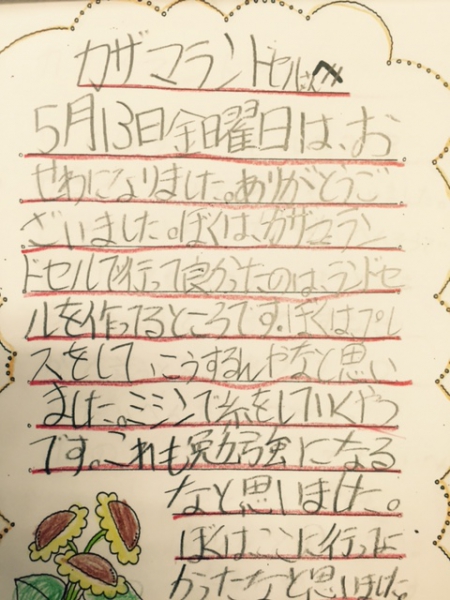 カザマランドセルさんへ
5月13日金曜日は、お
せわになりました。ありがとうご
ざいました。ぼくは、カザマラン
ドセルで行って良かったのは、ランドセ
ルを作ってるところです。ぼくは、プレ
スをして、こうするんやなと思い
ました。ミシンで糸をしていくやつ
です。これも勉強になる
なと思いました。
ぼくはここに行ってよ
かったなと思いました。